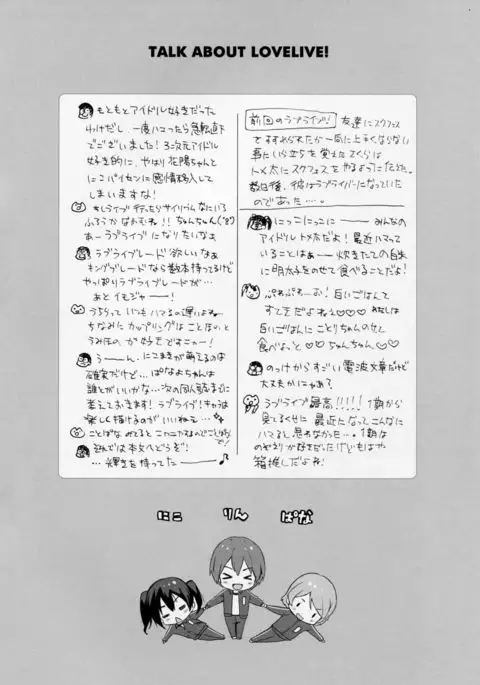 TALK ABOUT LOVELIVE!
もともとアイドル好きだった
わけだし、一度ハマったら急転直下
でございました!3次元アイドル
好き的に、やはり花陽ちゃんと
にこパイセンに感情移入して
しまいますな!
もしライブ行ったらサイリウムなにいろ
ふろうかなおむね!!ちゅんちゅん(・8・)
あーラブライブになりたいなぁ
ラブライブレード欲しいなぁ
キングブレードなら数本持ってるけど
やっぱりラブライブレードが…
あとイモジャー!
うちらっていつもハマるの遅いよねー
ちなみにカップリングはことほのと
うみほのが好きですニャー!
うーん、にこまきが萌えるのは
確実だけど…ぱなよちゃんは
誰とがいいかな…次の同人誌までに
考えておきます!ラブライブ!キャラは
楽しく描けるのがいいねぇ…
ことぱな
それでは本文へどうぞ!
…輝きを待ってたー♪
前回のラブライブ!
友達にスクフェス
をすすめられたが一気に上手くならない
事にいら立ちを覚えたさくらは
トメ太にスクフェスをやるようにたのんだ。
数日後、彼はラブライバーになっていた
のであった…。
にっこにっこにー みんなの
アイドルトメ太だよ!最近ハマって
いることはぁー 炊きたての白米
に明太子をのせて食べることだよ!
ぷわぷわーお!白いごはんって
すてきだよねぇ♡♡わたしは
白いごはんにことりちゃんのせて
食べよっと♡ちゅんちゅん♡♡
のっけからすごい電波文章だけど
大丈夫かにゃあ?
ラブライブ最高!!!!!1期から
見てるくせに最近になってこんなに
ハマると思わなかった…。1期は
のぞえりが好きだったけどいまはもはや
箱推しだよね!
にこ りん ぱな